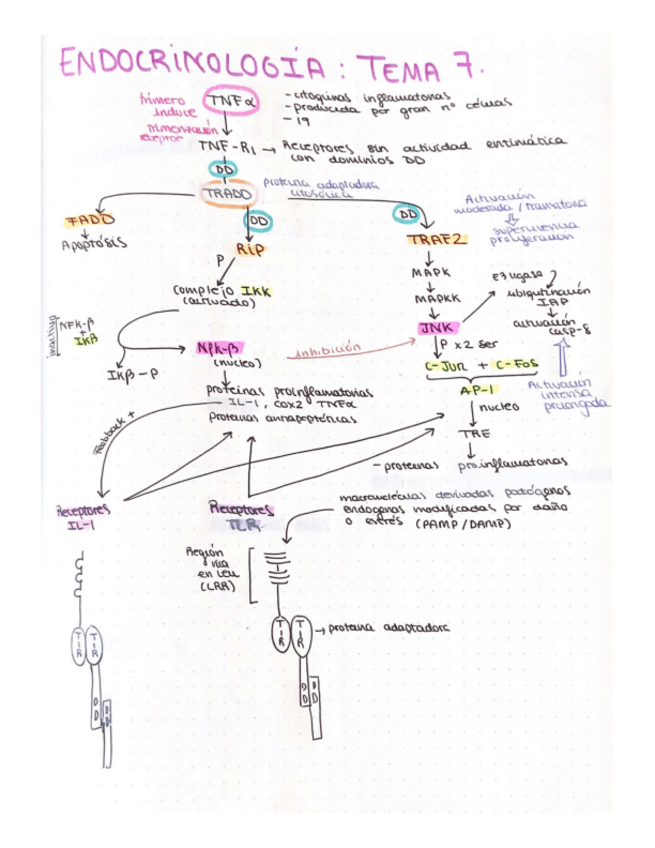 ENDOCRINOLOGÍA : TEMA 7.
trímero
induce
trimerización
receptor
TNFα
- citoquinas inflamatorias
- producida por gran nº células
- 19
TNF-R1 → Receptores sin actividad enzimática
con dominios DD
DD
TRADD
proteína adaptadora
citosólica
FADD
Apoptósis
DD
RiP
P
complejo IKK
(activado)
DD
TRAF2
MAPK
MAPKK
JNK
Activación
moderada / transitoria
supervivencia
proliferación
E3 ligasa
ubiquitinación
IAP
activación
casp-8
Activación
intensa
prolongada
P x2 ser
C-Jun + C-Fos
AP-1
nucleo
TRE
- proteinas proinflamatorias
inactivo
NFK-β
+
IKβ
IKβ-P
NFK-β
(nucleo)
inhibición
proteinas proinflamatorias
IL-1, cox2 TNFα
Proteinas antiapoptóticas
Feedback +
Receptores
IL-1
Receptores
TLR
macromoléculas derivadas patógenos
endogenas modificadas por daño
o estrés (PAMP/DAMP)
Región
rica
en Leu
(LRR)
TIR
TIR
→ proteina adaptadora
DD
DD
TIR
TIR
DD
DD